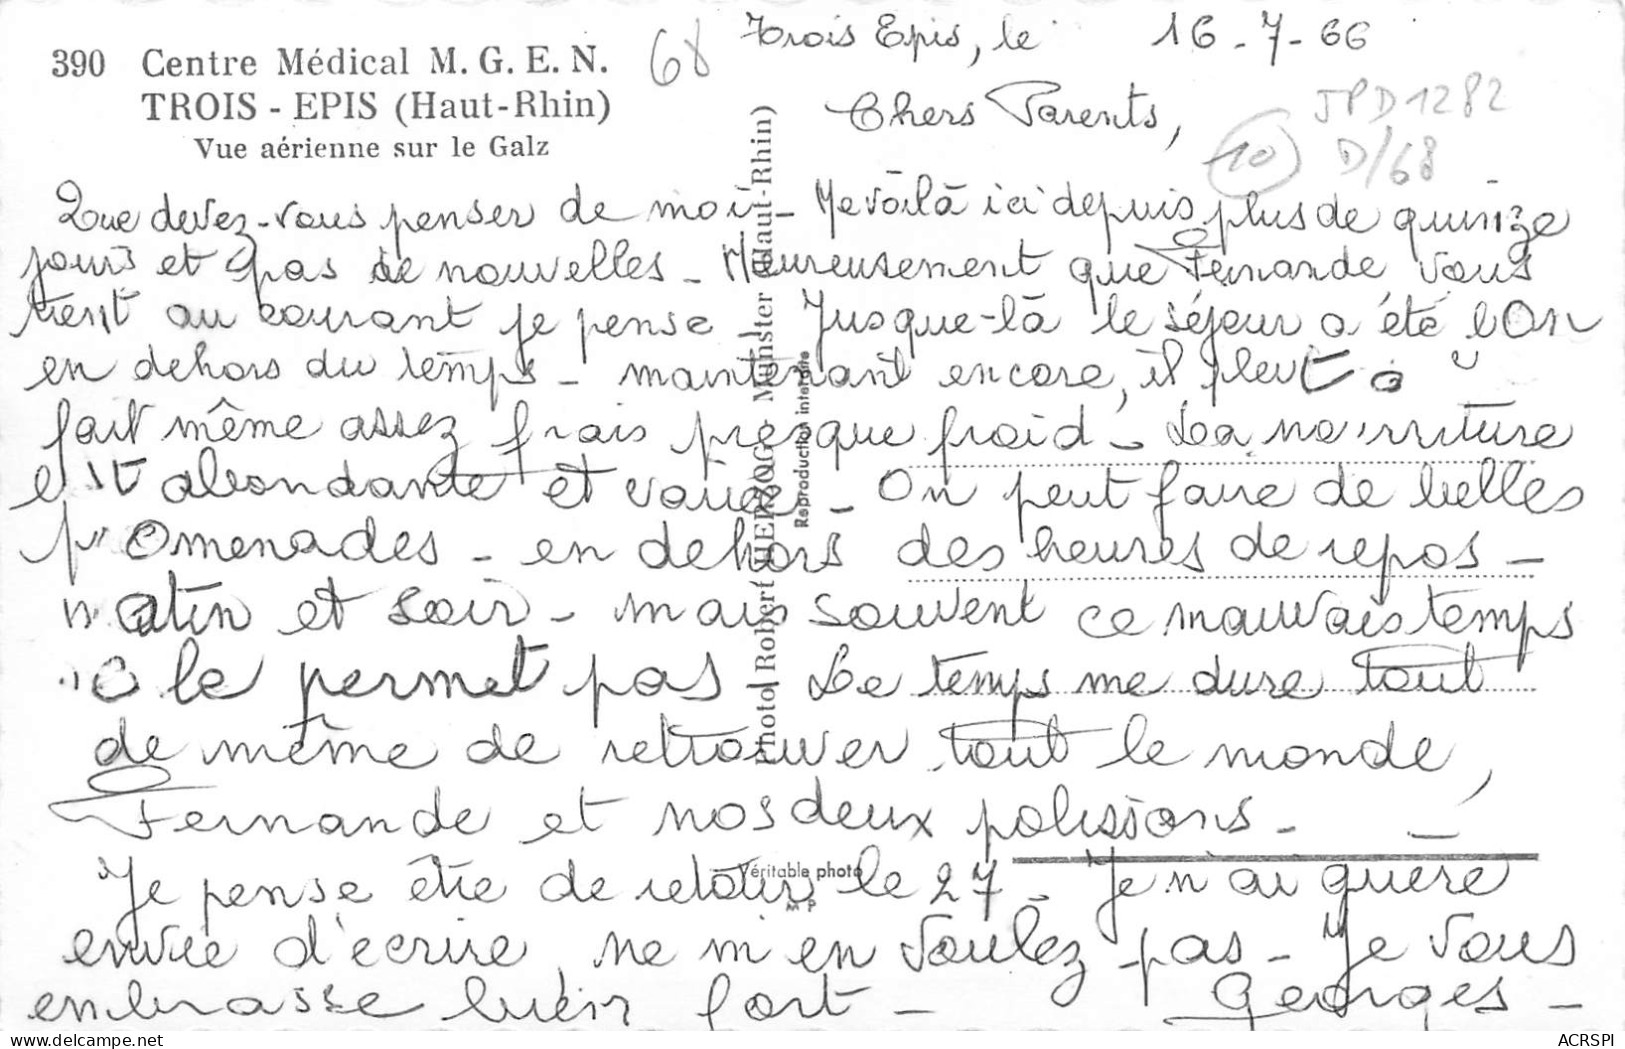 390 Centre Médical M. G. E. N.
TROIS - EPIS (Haut-Rhin)
Vue aérienne sur le Galz
68
Trois Epis, le 16-7-66
JPD1282
10 D/68
Chers Parents,
Que devez-vous penser de moi - Me voilà ici depuis plus de quinze
jours et pas de nouvelles - Heureusement que Fernande vous
tient au courant je pense Jusque-là le séjour a été bon
en dehors du temps - maintenant encore, il pleut
fait même assez frais presque froid - La nourriture
est abondante et variée - On peut faire de belles
promenades - en dehors des heures de repos -
matin et soir - mais souvent ce mauvais temps
le permet pas Le temps me dure tout
de même de retrouver tout le monde,
Fernande et nos deux polissons -
Je pense être de retour le 27 - Je n'ai guère
envie d'écrire, ne m'en voulez pas - Je vous
embrasse bien fort - Georges -
Photo Robert HERZOG - Munster (Haut-Rhin)
Reproduction interdite
Véritable photo
M P
ACRSPI